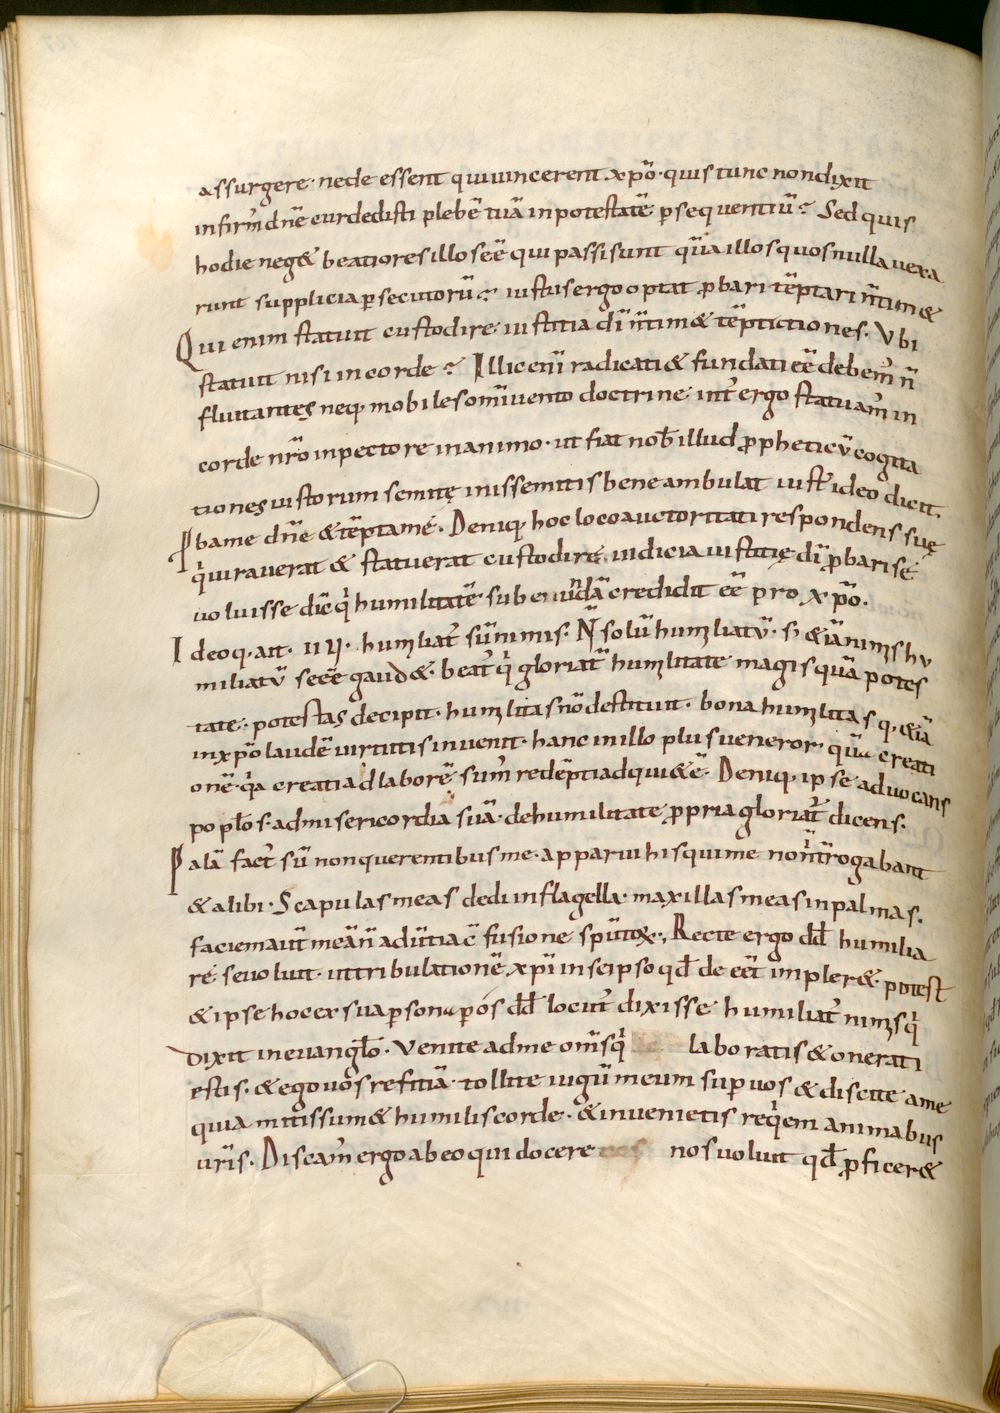 assurgere· ne de essent qui uincerent xp̄o· quis tunc non dixit
infirm̄ dn̄e cur dedisti plebē tuā in potestatē ꝑsequentiū? Sed quis
hodie neg& beatiores illos eē qui passi sunt quā illos quos nulla uexa
runt supplicia ꝑsecutorū? iustus ergo optat ꝓbari tēptari n̄ tim&
Qui enim statuit custodire iustitia dī n̄ tim& tēptictiones. Vbi
statuit nisi in corde? Illic enī radicati & fundati eē debem̄ n̄
fluitantes neq· mobiles omī uento doctrine int̄ ergo statuam̄ in
corde nr̄o in pectore in animo· ut fiat nob̄ illud ꝓpheticū cogita
tiones iustorum semitę inissemitis bene ambulat iust̄ ideo dicit.
Pbame dn̄e & tēpta mé. Deniq· hoc loco auctoritati respondens suę
q̇ iurauerat & statuerat custodire iudicia iustitię dī ꝓbari sé
uoluisse dīc q̇ humilitatē subeundā credidit eē pro xp̄o.
Ideoq· ait· humliat̄ sū nimis. N̄ solū humliatū· s; &iā nimis hu
miliatū se eē gaud&· beat̄ q̇ gloriat̄ humlitate magis quā potes
tate· potestas decipit· humlitas nō destituit· bona humlitas q· &iā
in xp̄o laudē uirtutis inuenit· hanc in illo plus ueneror· quā creati
onē· q̇a creati ad laborē sum̄ redēpti ad quiētē. Deniq· ipse aduocans
poplōs· ad misericordia suā· de humilitate ꝓpria gloriat̄ dicens.
Palā fact̄ sū non querentibus me· apparui his qui me non int̄rogabant
& alibi· Scapulas meas dedi in flagella· maxillas meas in palmas.
faciem aut̄ meā n̄ aduertī a cfusione sputoꝝ., Recte ergo dd̄ humilia
ré se uoluit· ut tribulationē xp̄i in se ipso qd̄ de eēt implere&· potest
& ipse hoc ex sua ꝑsona ꝑ os dd̄ locut̄ dixisse humiliat̄ nimis q̇
dixit in euanglō· Venite ad me om̄s q̇ laboratis & onerati
estis· & ego uos reficiā· tollite iugū meum suꝑ uos & discite a me
quia mitis sum & humilis corde· & inuenietis req̇em animabus
ur̄is. Discam̄ ergo ab eo qui docere nos uoluit qd̄ ꝓficer&